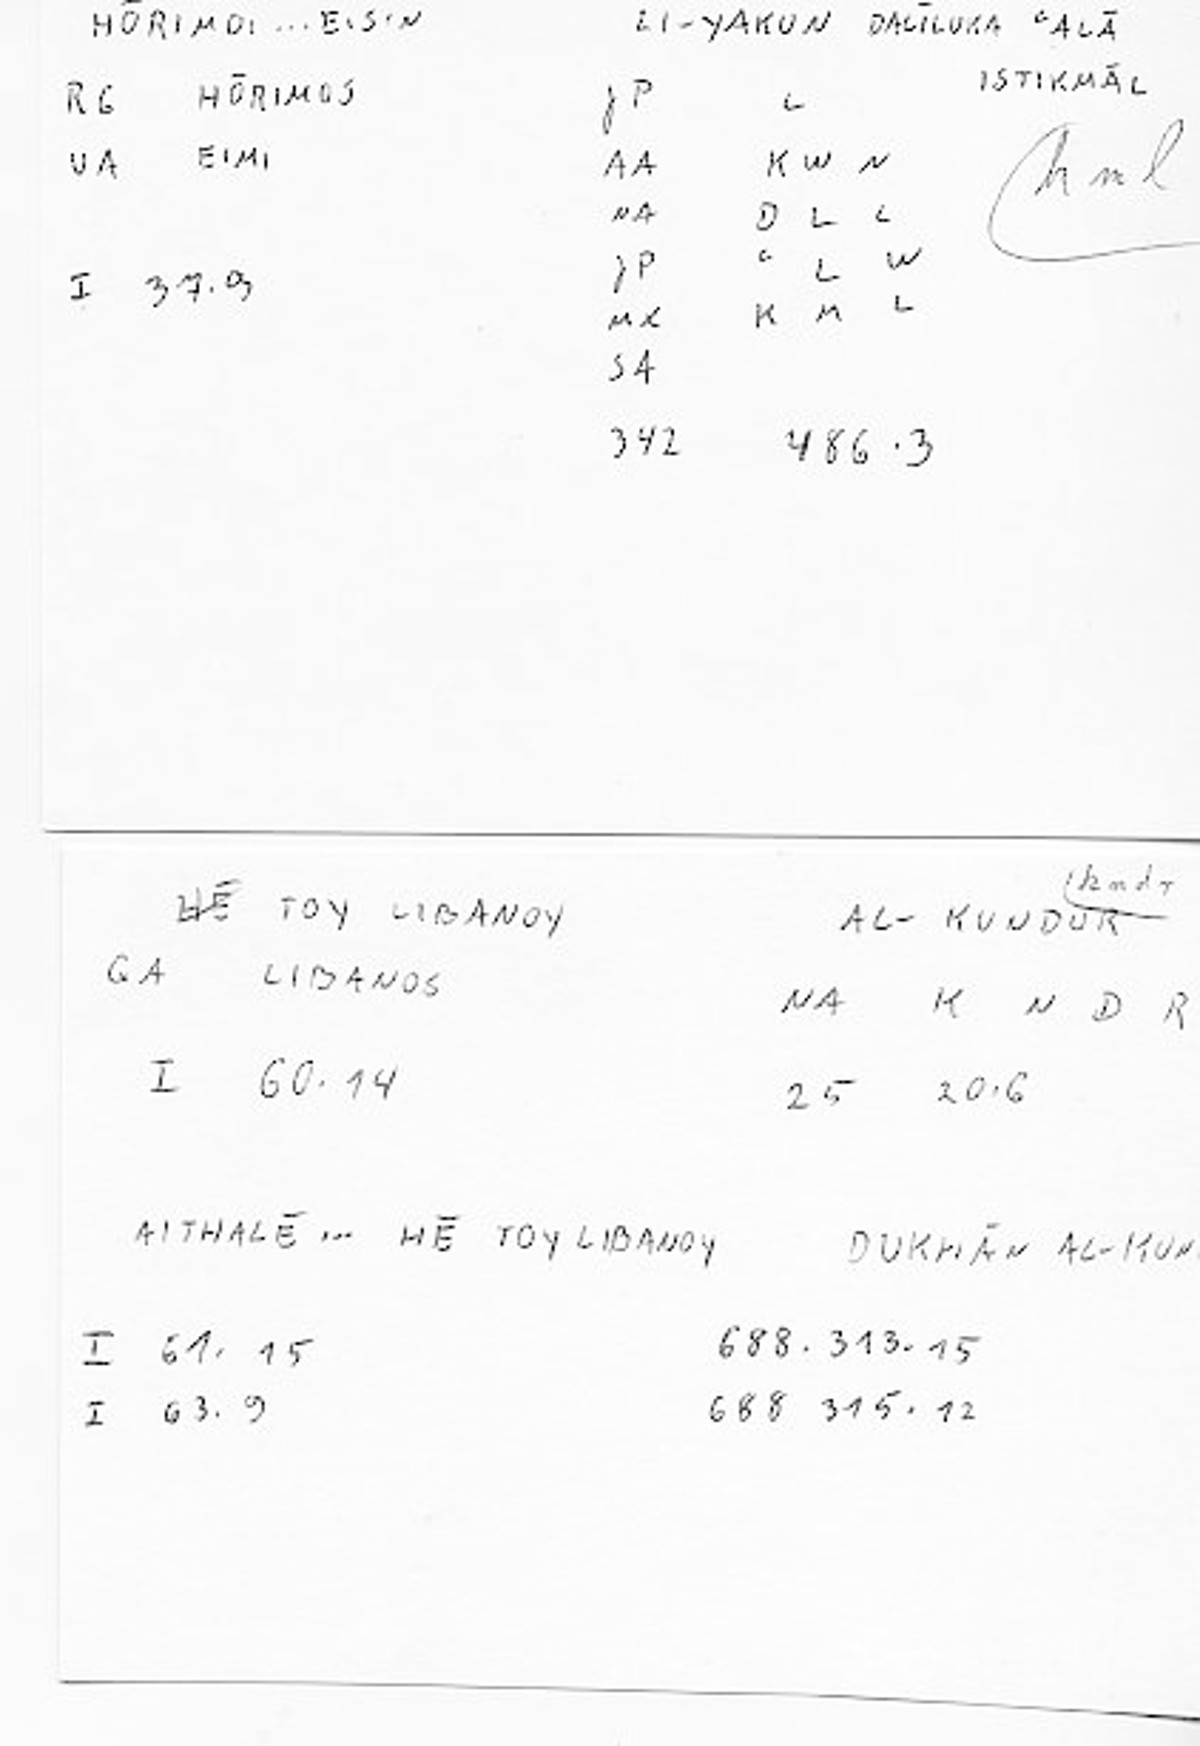 HŌRIMOI ... EISIN LI-YAKUN DALĪLUKA ʿALĀ
ISTIKMĀL
RG HŌRIMOS jP L
kml
UA EIMI AA K W N
NA D L L
I 37.9 jP ʿ L W
MX K M L
SA
342 486.3
kndr
HĒ TOY LIBANOY AL-KUNDUR
GA LIBANOS NA K N D R
I 60.14 25 20.6
AITHALĒ ... HĒ TOY LIBANOY DUKHĀN AL-KUN
I 61.15 688.313.15
I 63.9 688 315.12